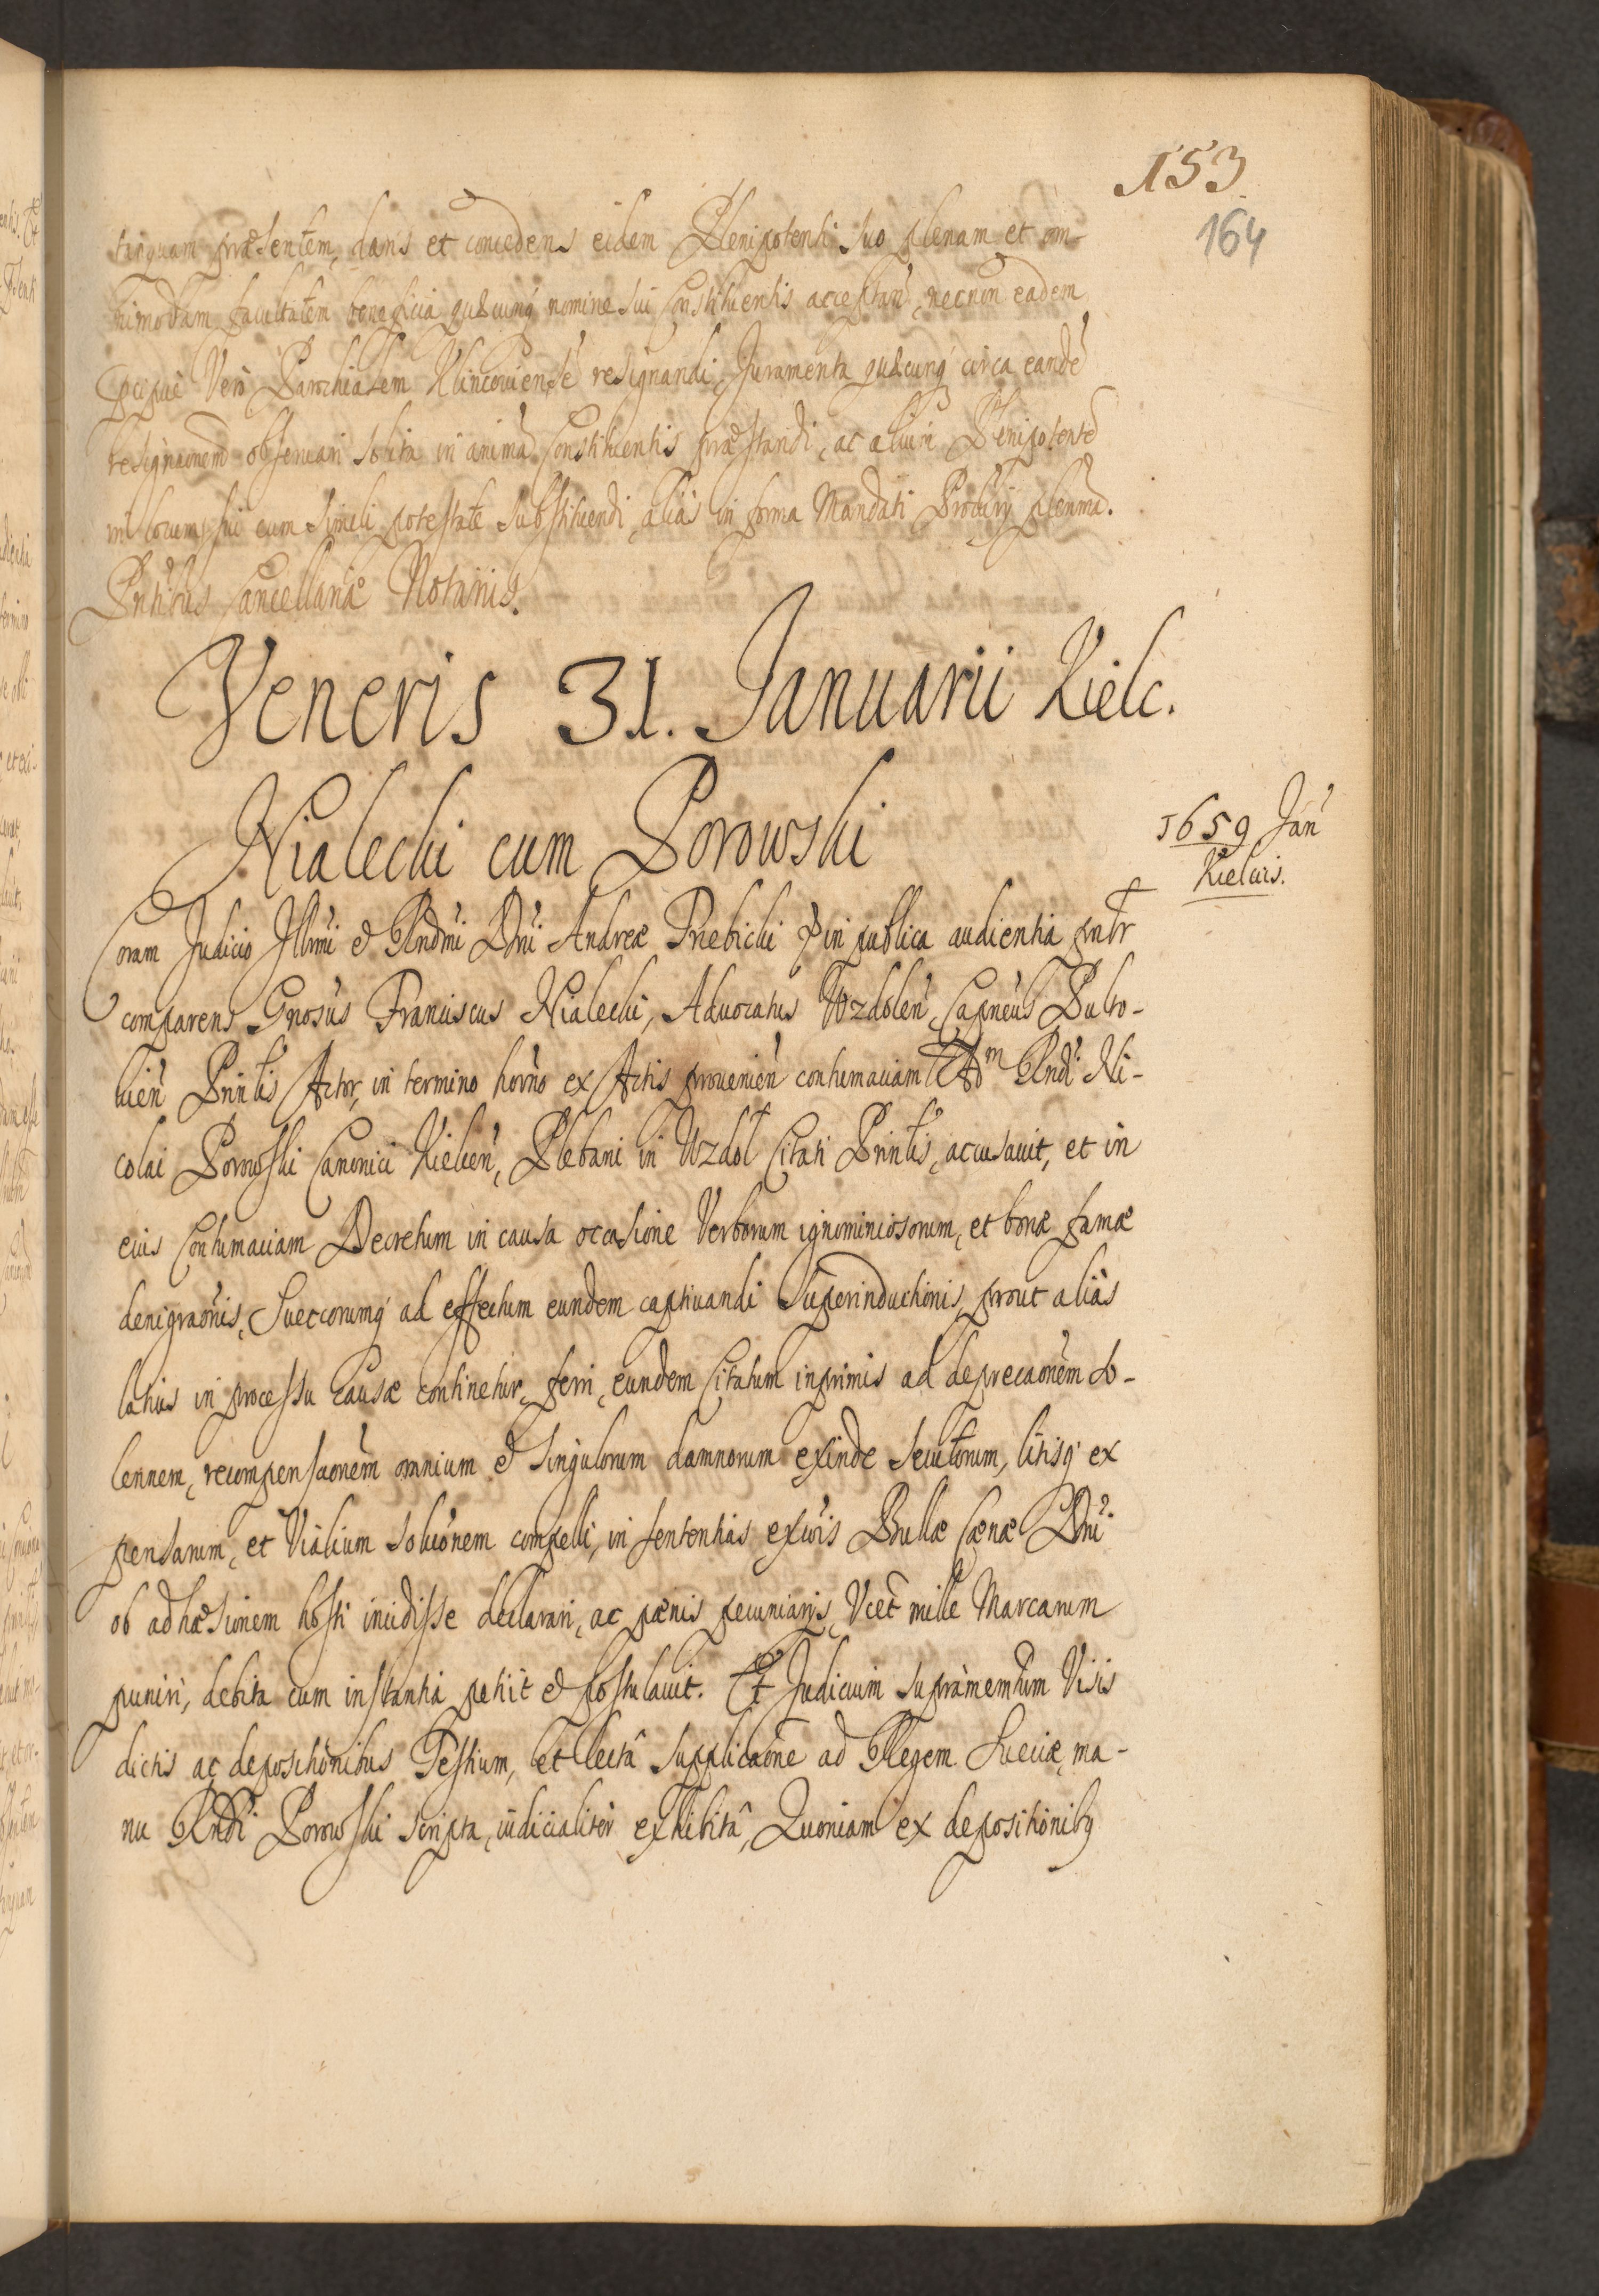 153
164
tanquam præsentem, dans et concedens eidem Plenipotenti suo plenam et om-
nimodam facultatem beneficia quæcunq nomine sui Constituentis acceptand, necnon eadem
præcipuè Verò Parochialem Xlincoviensẽ resignandi, Juramenta quæcunq circa eandẽ
resignaõnem observari solita in animã Constituentis præstandi, ac alium Plenipotentẽ
in locum sui cum simili potestate substituendi, aliàs in forma Mandati Procurij plenma.
Pntibus Cancellariæ Notarijs.
Veneris 31. Januarii Kielc.
Nialecki cum Porowski
1659 Jan
Kielcis.
Coram Judicio Illmi & Rndmi Dni Andreæ Trzebicki & in publica audientia pntr
comparens Gnosus Franciscus Nialecki, Advocatus Wzdolen, Capneus Pulto-
vien Printis Actor, in termino horno ex Actis provenien contumaciam Adm Rndi Ni-
colai Porowski Canonici Kielcen, Plebani in Wzdol Citati Printis, accusavit, et in
eius Contumaciam Decretum in causa occasione Verborum ignominiosorum, et bonæ famæ
denigraõnis, Suecorumq ad effectum eundem captivandi Superinductionis, prout aliàs
latius in processu causæ continetur, ferri, eundem Citatum inprimis ad deprecaõnem so-
lennem, recompensaõnem omnium & singulorum damnorum exinde secutorum, litisq ex
pensarum, et Vialium soluõnem compelli, in sententias excõis Bullæ Cænæ Dni
ob adhæsionem hosti incidisse declarari, ac pænis pecuniarijs, Vcet mille Marcarum
puniri, debita cum instantia petiit & postulavit. Et Judicium supramemtum Visis
dictis ac depositionibus Testium, et lectâ supplicaõne ad Regem Sueciæ, ma-
nu Rndi Porowski scripta, iudicialiter exhibitâ, Quoniam ex depositionibq